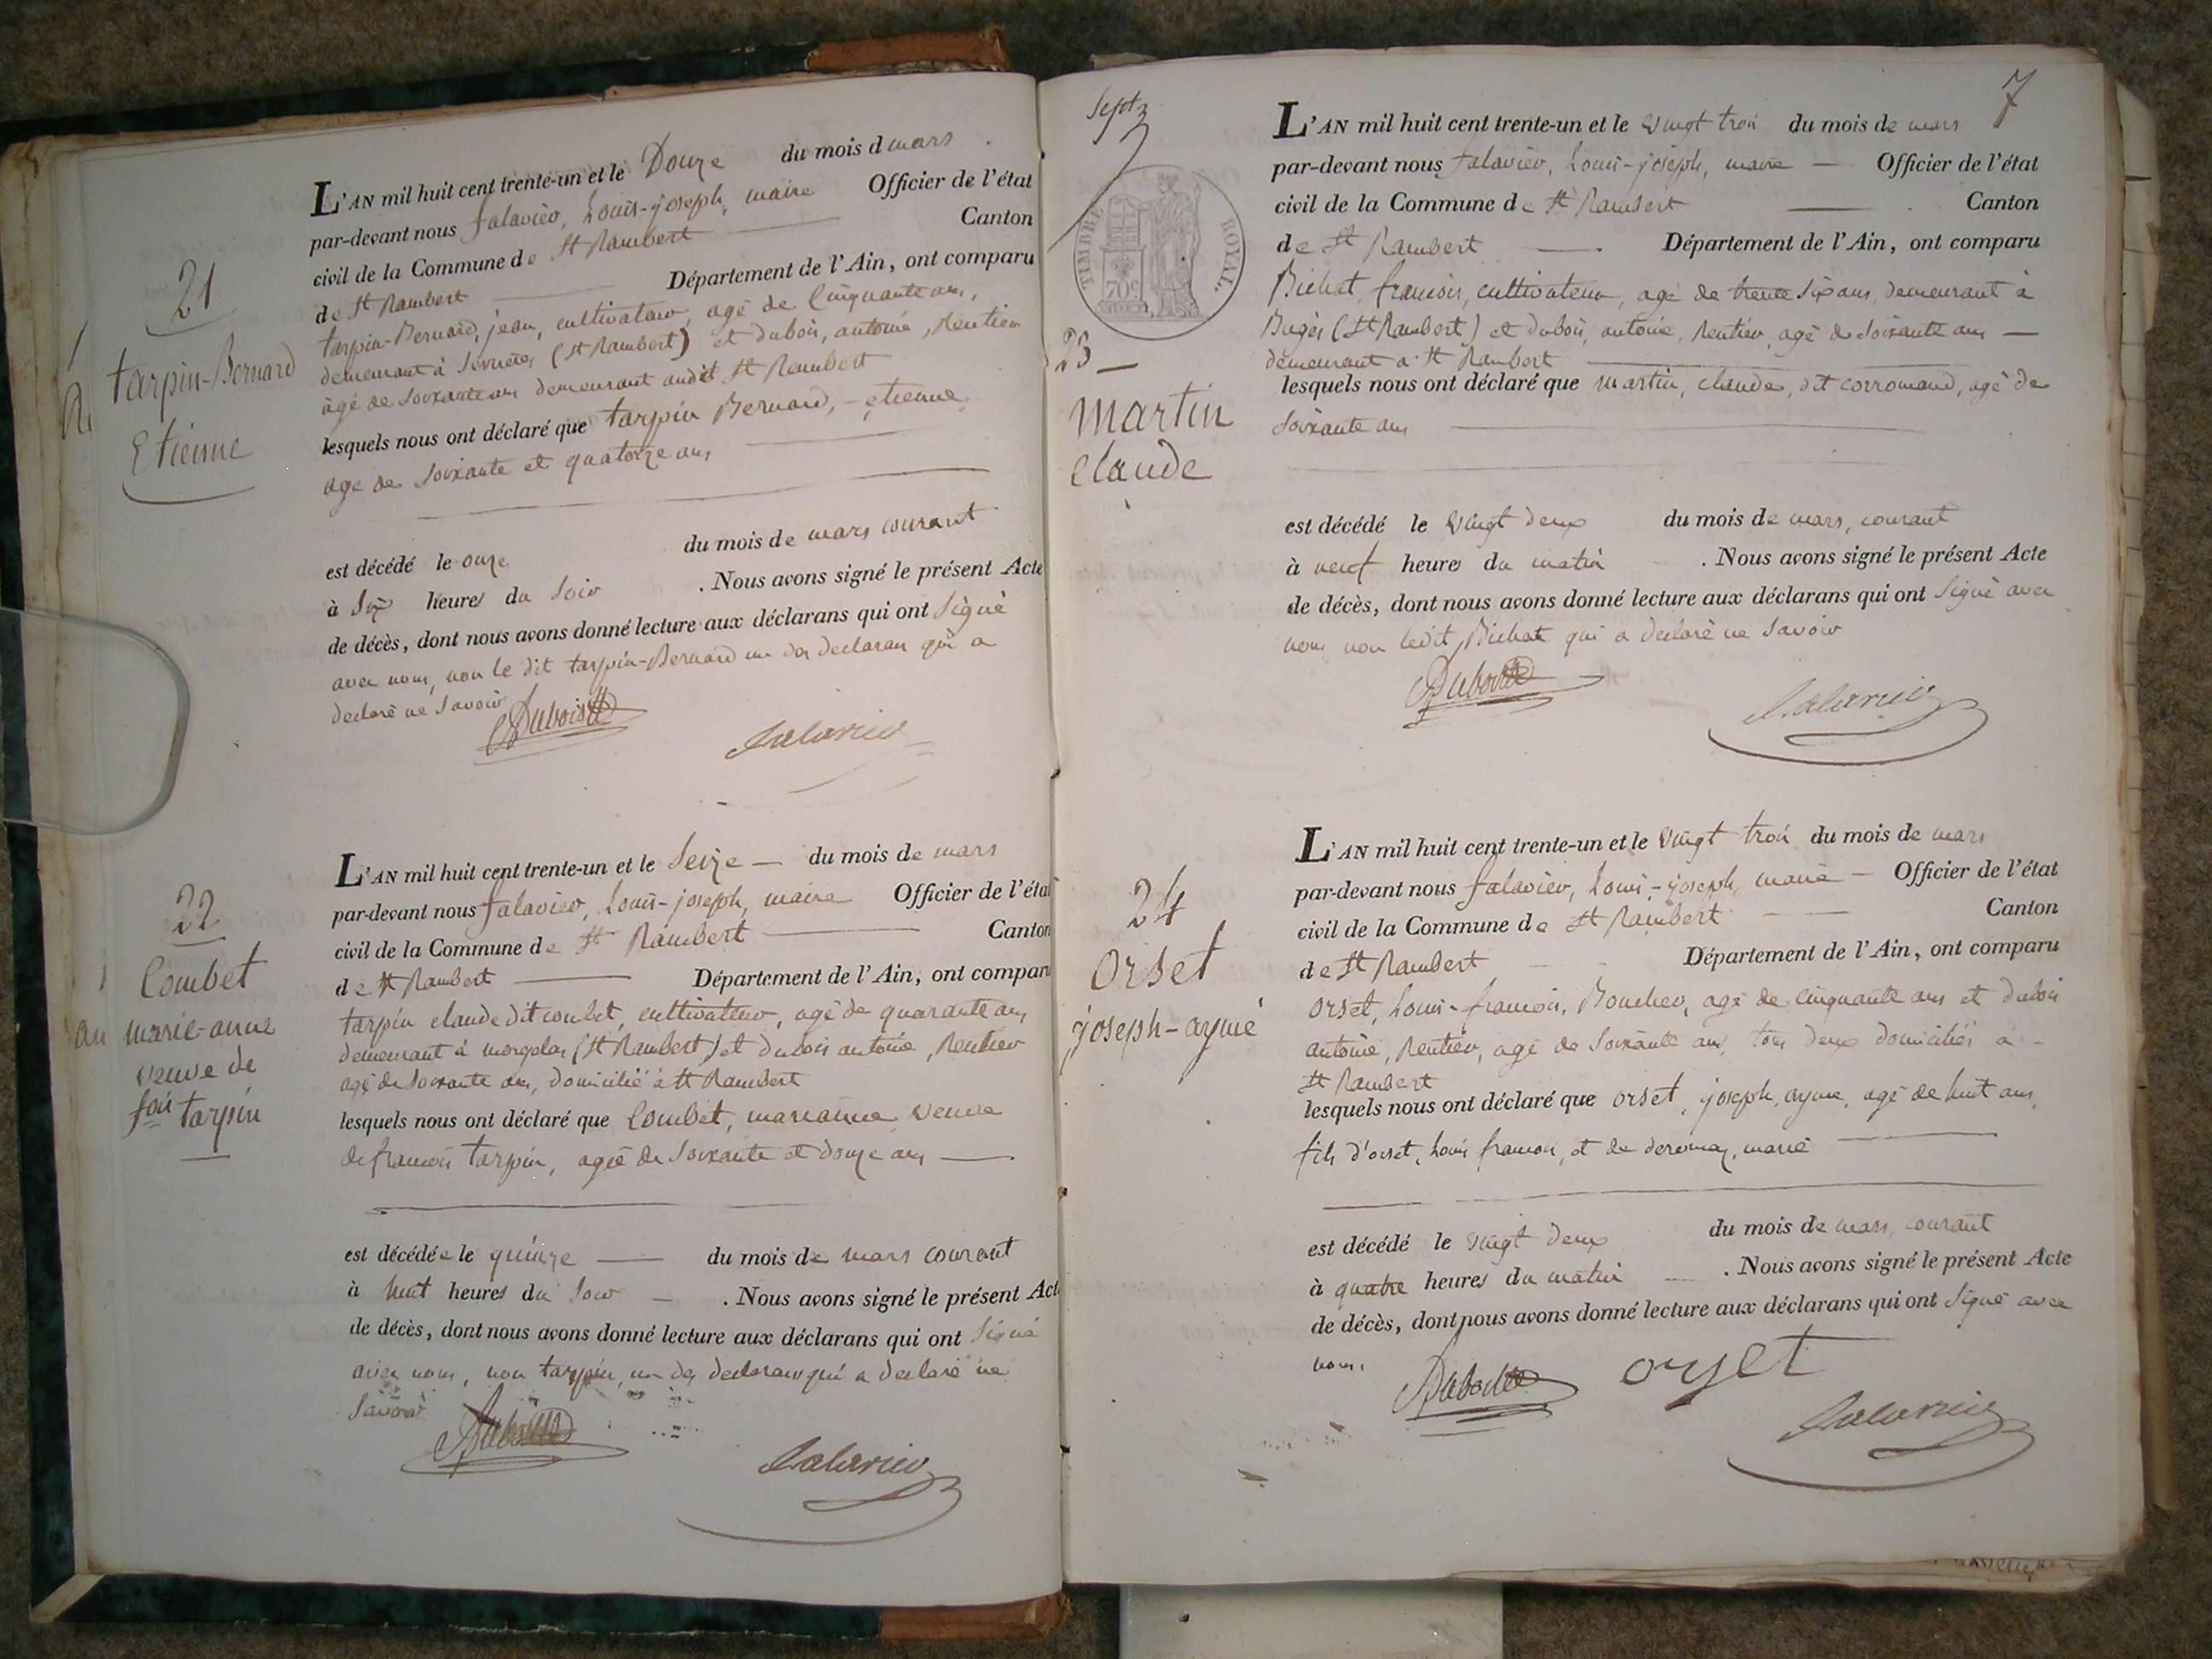 21
tarpin-Bernard
Etienne
L'AN mil huit cent trente-un et le Douze du mois d mars
par-devant nous falavier, Louis-joseph, maire Officier de l'état
civil de la Commune de St Rambert Canton
de St Rambert Département de l'Ain, ont comparu
tarpin-Bernard, jean, cultivateur, agé de Cinquante ans,
demeurant à (St Rambert) et dubois, antoine, Rentier
âgé de soixante ans demeurant audit St Rambert
lesquels nous ont déclaré que tarpin Bernard, - etienne
age de soixante et quatorze ans
est décédé le onze du mois de mars courant
à six heures du soir . Nous avons signé le présent Acte
de décès, dont nous avons donné lecture aux déclarans qui ont signé
avec nous, non le dit tarpin-Bernard un des declarans qui a
declaré ne savoir
Dubois
falavier
22
Combet
marie-anne
veuve de
fois tarpin
L'AN mil huit cent trente-un et le seize du mois de mars
par-devant nous falavier, Louis-joseph, maire Officier de l'état
civil de la Commune de St Rambert Canton
de St Rambert Département de l'Ain, ont comparu
tarpin claude dit coulet, cultivateur, agé de quarante ans
demeurant à morgelas (St Rambert) et dubois antoine, Rentier
agé de soixante ans, domicilié à St Rambert
lesquels nous ont déclaré que Combet, marianne veuve
de francois tarpin, agée de soixante et douze ans
est décédée le quinze du mois de mars courant
à huit heures du soir . Nous avons signé le présent Acte
de décès, dont nous avons donné lecture aux déclarans qui ont signé
avec nous, non tarpin, un des declarans qui a declaré ne
savoir
Dubois
falavier
Sept
7
TIMBRE ROYAL.
70c
23
martin
claude
L'AN mil huit cent trente-un et le vingt trois du mois de mars
par-devant nous falavier, Louis-joseph, maire Officier de l'état
civil de la Commune de St Rambert Canton
de St Rambert Département de l'Ain, ont comparu
Bichat, francois, cultivateur, agé de trente six ans, demeurant à
Bugès (St Rambert) et dubois, antoine, Rentier, agé de soixante ans
demeurant a St Rambert
lesquels nous ont déclaré que martin, claude, dit corromand, agé de
soixante ans
est décédé le vingt deux du mois de mars, courant
à neuf heures du matin . Nous avons signé le présent Acte
de décès, dont nous avons donné lecture aux déclarans qui ont signé avec
nous non ledit Bichat qui a declaré ne savoir
Dubois
falavier
24
orset
joseph-aymé
L'AN mil huit cent trente-un et le vingt trois du mois de mars
par-devant nous falavier, Louis-joseph, maire Officier de l'état
civil de la Commune de St Rambert Canton
de St Rambert Département de l'Ain, ont comparu
orset, Louis-francois, Boucher, agé de cinquante ans et dubois
antoine, Rentier, agé de soixante ans, tous deux domiciliés à
St Rambert
lesquels nous ont déclaré que orset, joseph, ayme, agé de huit ans,
fils d'orset, Louis francois, et de marie
est décédé le vingt deux du mois de mars, courant
à quatre heures du matin . Nous avons signé le présent Acte
de décès, dont nous avons donné lecture aux déclarans qui ont signé avec
nous.
Dubois
orset
falavier